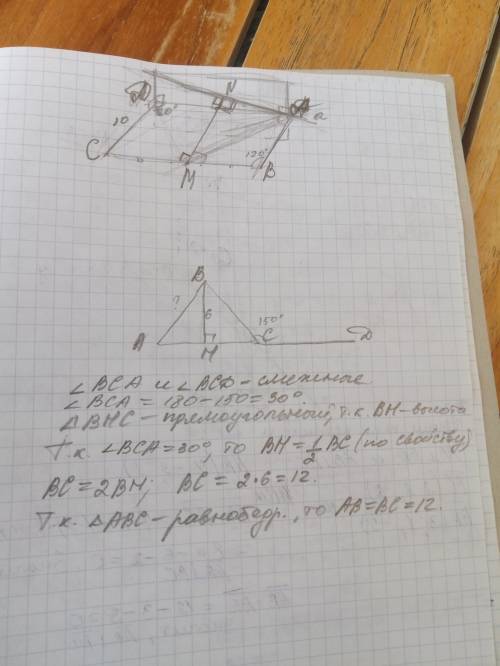 N
a
60°
10
C
120°
M
B
B
?
6
150°
A
H
C
D
∠BCA и ∠BCD - смежные
∠BCA = 180-150=30°
△BHC - прямоугольный, т.к. BH - высота
Т.к. ∠BCA=30°, то BH = 1/2 BC (по свойству)
BC = 2BH; BC = 2·6 = 12.
Т.к. △ABC - равнобедр., то AB = BC = 12.